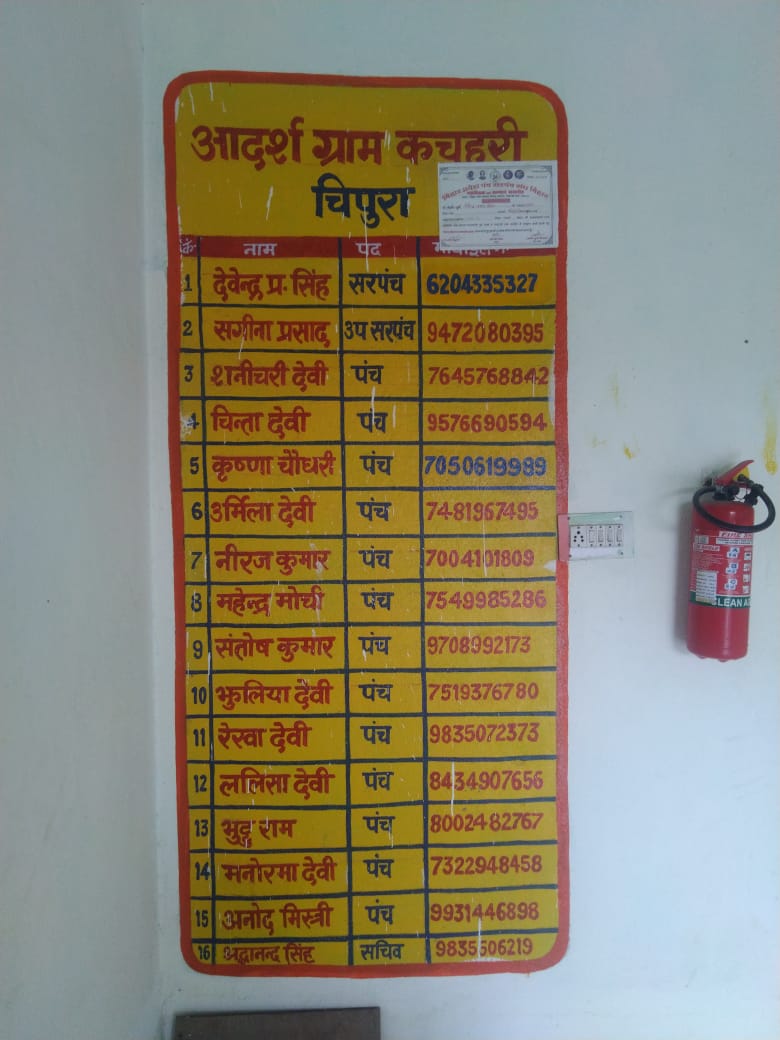 आदर्श ग्राम कचहरी
चिपुरा
बिहार प्रदेश पंच सरपंच संघ बिहार
क्र. नाम पद
1 देवेन्द्र प्र. सिंह सरपंच 6204335327
2 सगीना प्रसाद उप सरपंच 9472080395
3 शनीचरी देवी पंच 7645768842
4 चिन्ता देवी पंच 9576690594
5 कृष्णा चौधरी पंच 7050619989
6 उर्मिला देवी पंच 7481967495
7 नीरज कुमार पंच 7004101809
8 महेन्द्र मोची पंच 7549985286
9 संतोष कुमार पंच 9708992173
10 झुलिया देवी पंच 7519376780
11 रेखा देवी पंच 9835072373
12 ललिसा देवी पंच 8434907656
13 भुटु राम पंच 8002482767
14 मनोरमा देवी पंच 7322948458
15 अनोद मिस्त्री पंच 9931446898
16 श्रद्धानन्द सिंह सचिव 9835506219
FIRE
CLEAN A